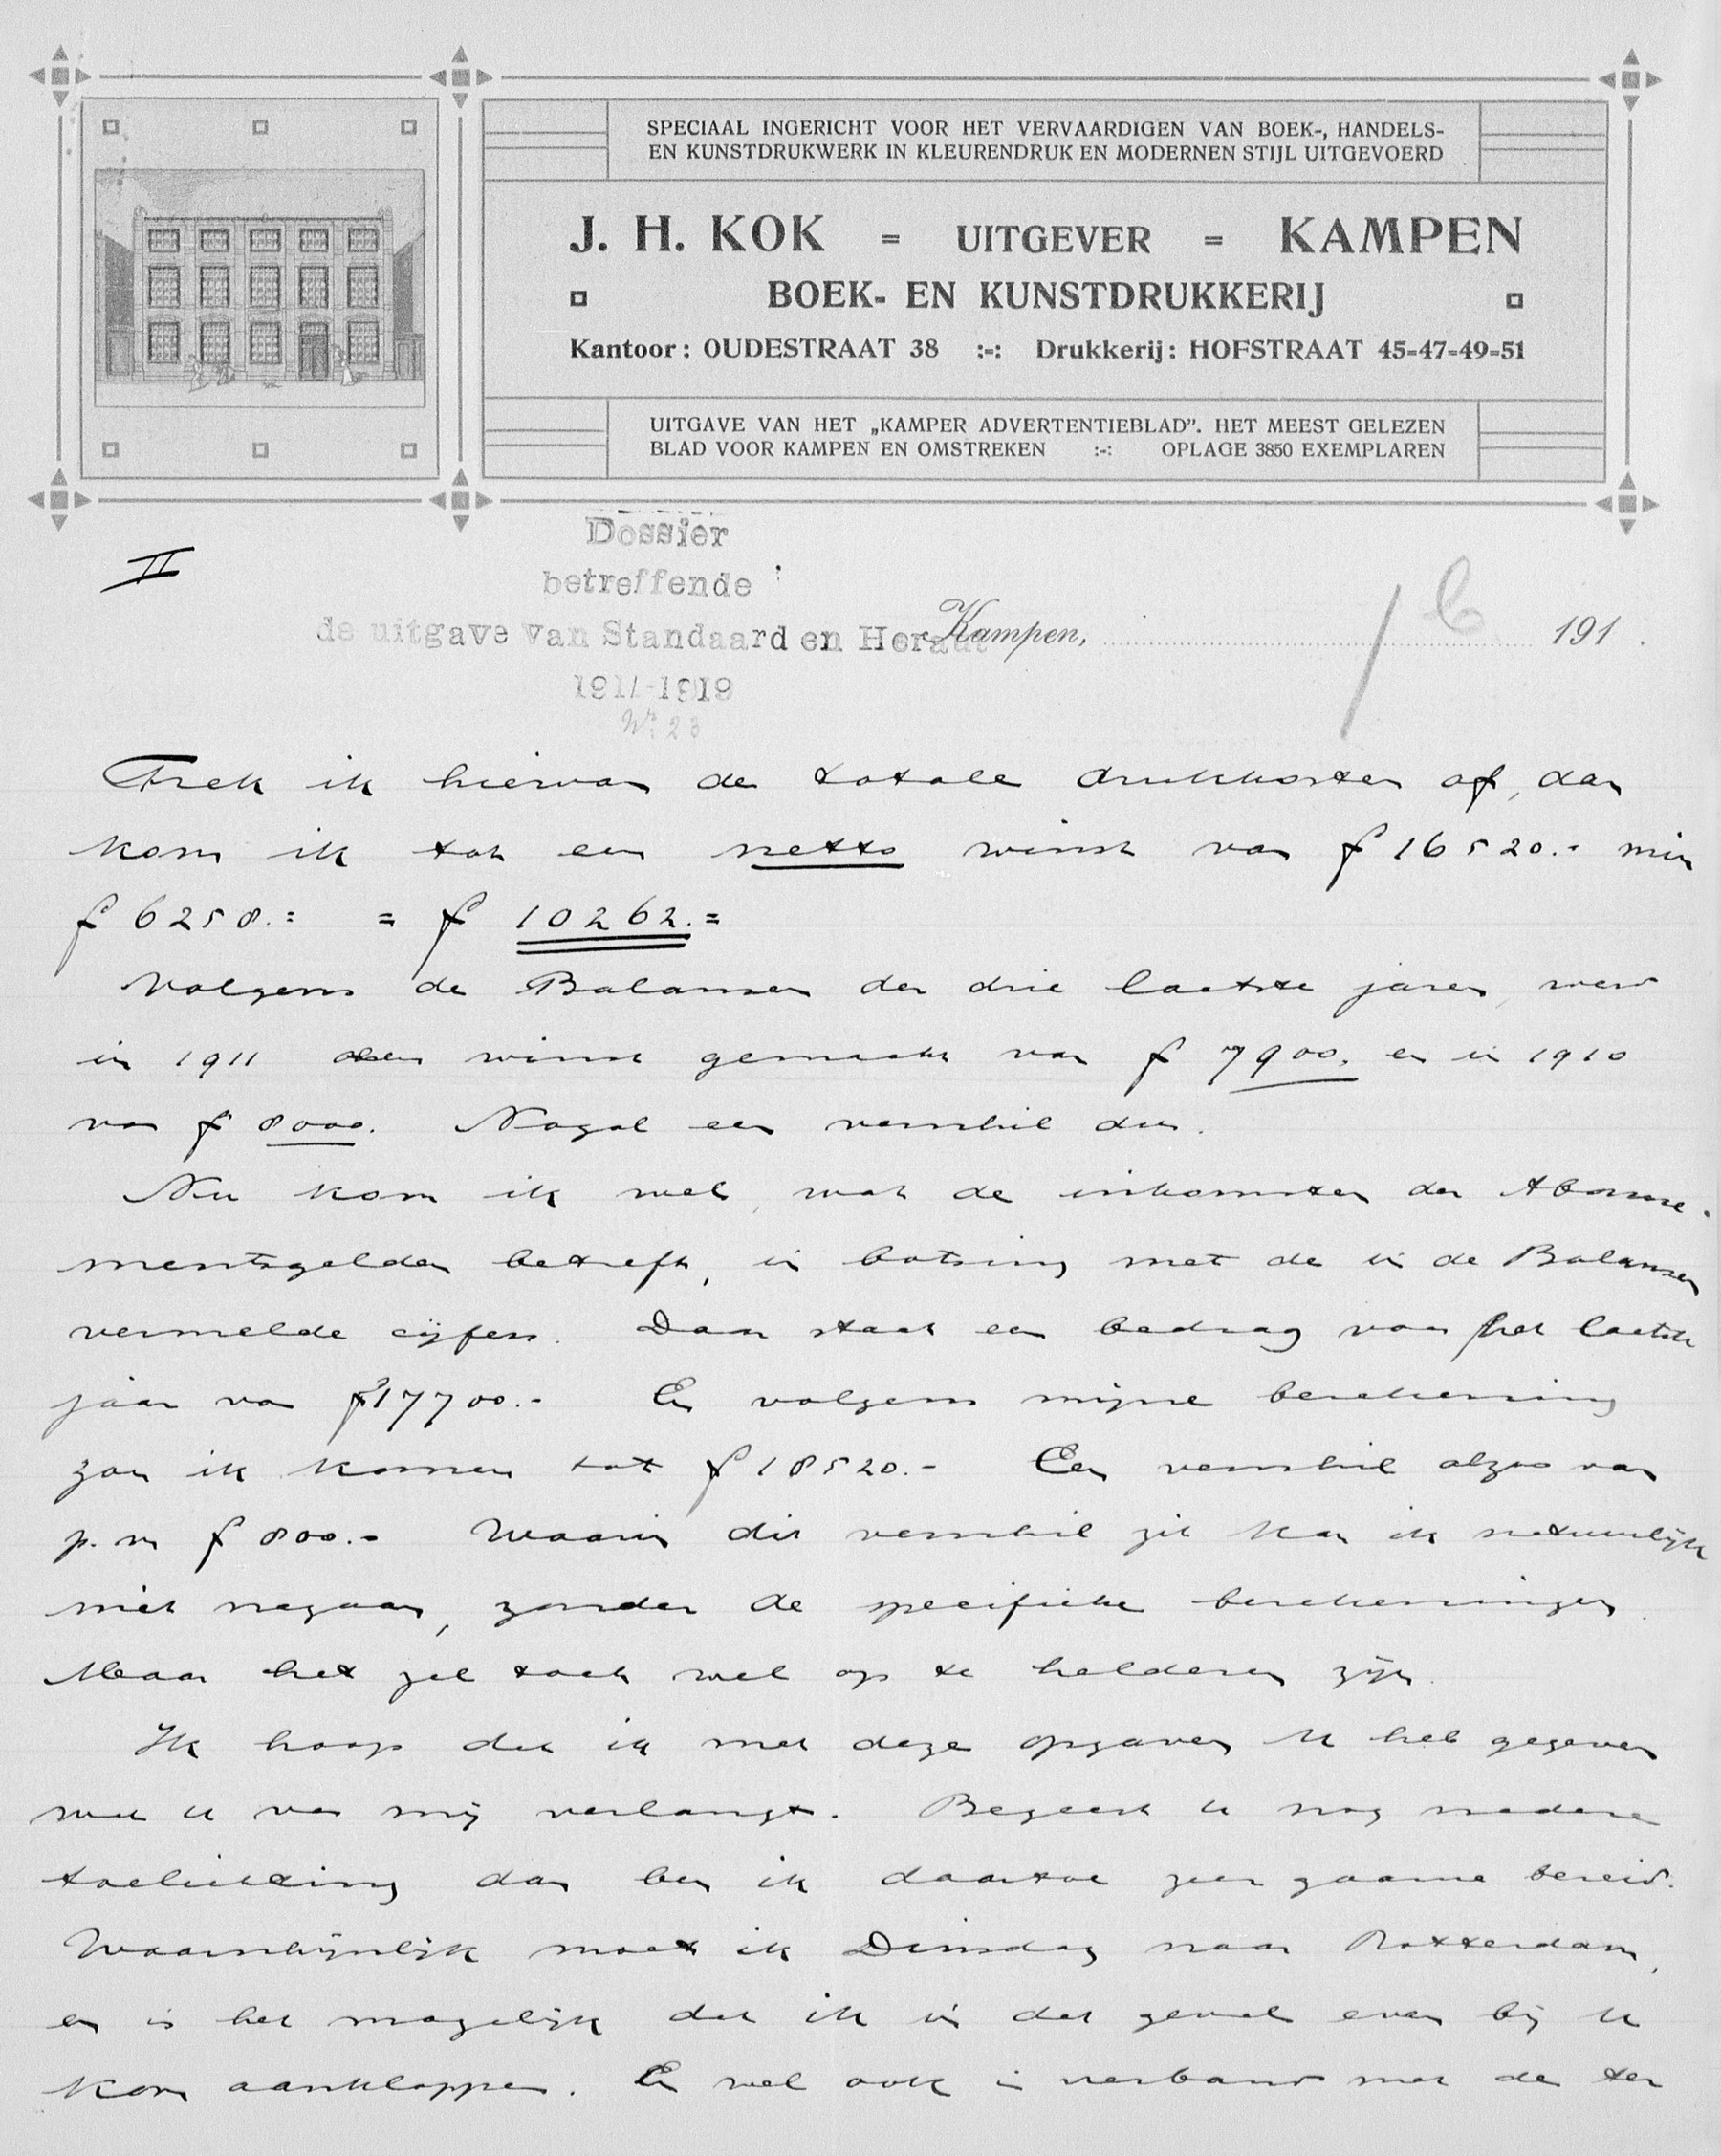 SPECIAAL INGERICHT VOOR HET VERVAARDIGEN VAN BOEK-, HANDELS-
EN KUNSTDRUKWERK IN KLEURENDRUK EN MODERNEN STIJL UITGEVOERD
J. H. KOK = UITGEVER = KAMPEN
BOEK- EN KUNSTDRUKKERIJ
Kantoor: OUDESTRAAT 38 :-: Drukkerij: HOFSTRAAT 45-47-49-51
UITGAVE VAN HET „KAMPER ADVERTENTIEBLAD”. HET MEEST GELEZEN
BLAD VOOR KAMPEN EN OMSTREKEN :-: OPLAGE 3850 EXEMPLAREN
II
Dossier
betreffende
de uitgave van Standaard en Heraut
Kampen, 191 .
1911-1919
No 23
Trek ik hiervan de totale drukkosten af, dan
kom ik tot een netto winst van f 16520.- min
f 6258.= = f 10262.=
Volgens de Balansen der drie laatste jaren, werd
in 1911 een winst gemaakt van f 7900. en in 1910
van f 8000. Nogal een verschil dus.
Nu kom ik wel, wat de inkomsten der Abonne-
mentsgelden betreft, in botsing met de in de Balansen
vermelde cijfers. Daar staat een bedrag voor het laatste
jaar van f 17700.- En volgens mijne berekening
zou ik komen tot f 18520.- Een verschil alzoo van
p.m f 800.- Waarin dit verschil zit kan ik natuurlijk
niet nagaan, zonder de specifieke berekeningen.
Maar het zal toch wel op te helderen zijn.
Ik hoop dat ik met deze opgaven U heb gegeven
wat U van mij verlangt. Begeert U nog nadere
toelichting dan ben ik daartoe zeer gaarne bereid.
Waarschijnlijk moet ik Dinsdag naar Rotterdam,
en is het mogelijk dat ik in dat geval even bij U
kom aankloppen. En wel ook in verband met de ter